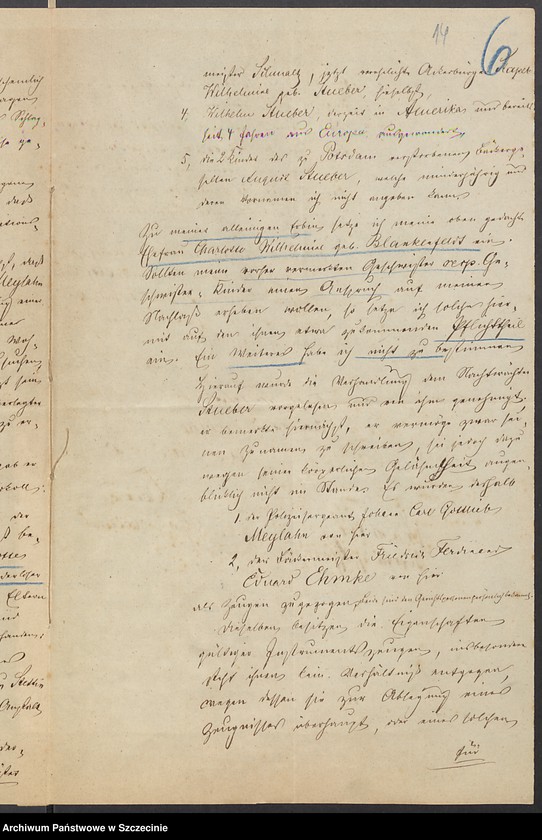 14
6
meister Schmalz, jetzt verehelichte Ackerbürger
Wilhelmine geb. Stueber, hieselbst,
4, Wilhelm Stueber, derzeit in Amerika und bereits
seit 4 Jahren aus Europa ausgewandert,
5, die 2 Kinder des zu Potsdam verstorbenen
sellen August Stueber, welche minderjährig und
deren Vornamen ich nicht angeben kann,
Zu meiner alleinigen Erbin setze ich meine oben gedachte
Ehefrau Charlotte Wilhelmine geb. Blankefeldt ein.
Sollten meine vorher vermerkten Geschwister resp. Ge-
schwister-Kinder einen Anspruch auf meinen
Nachlaß erheben wollen, so setze ich solche hier-
mit auf den ihnen etwa zukommenden Pflichttheil
ein. Ein Weiteres habe ich nicht zu bestimmen
Hierauf wurde die Verhandlung dem Nachtwächter
Stueber vorgelesen und von ihm genehmigt,
er bemerkte hiernächst, er vermöge zwar sei-
nen Zunamen zu schreiben, sei jedoch dazu
wegen seiner körperlichen Gelähmtheit augen-
blicklich nicht im Stande. Es wurden deshalb
1. der Polizeisergeant Johann Carl Gottlieb
Meylahn von hier
2, der Bäckermeister Friedrich Ferdinand
Eduard Ehmke von hier
als Zeugen zugezogen,
Dieselben besitzen die Eigenschaften
gültiger Instrumentszeugen, insbesondere
steht ihnen kein Verhältniß entgegen,
wegen dessen sie zur Ablegung eines
Zeugnisses überhaupt, oder eines solchen
für
Archiwum Państwowe w Szczecinie